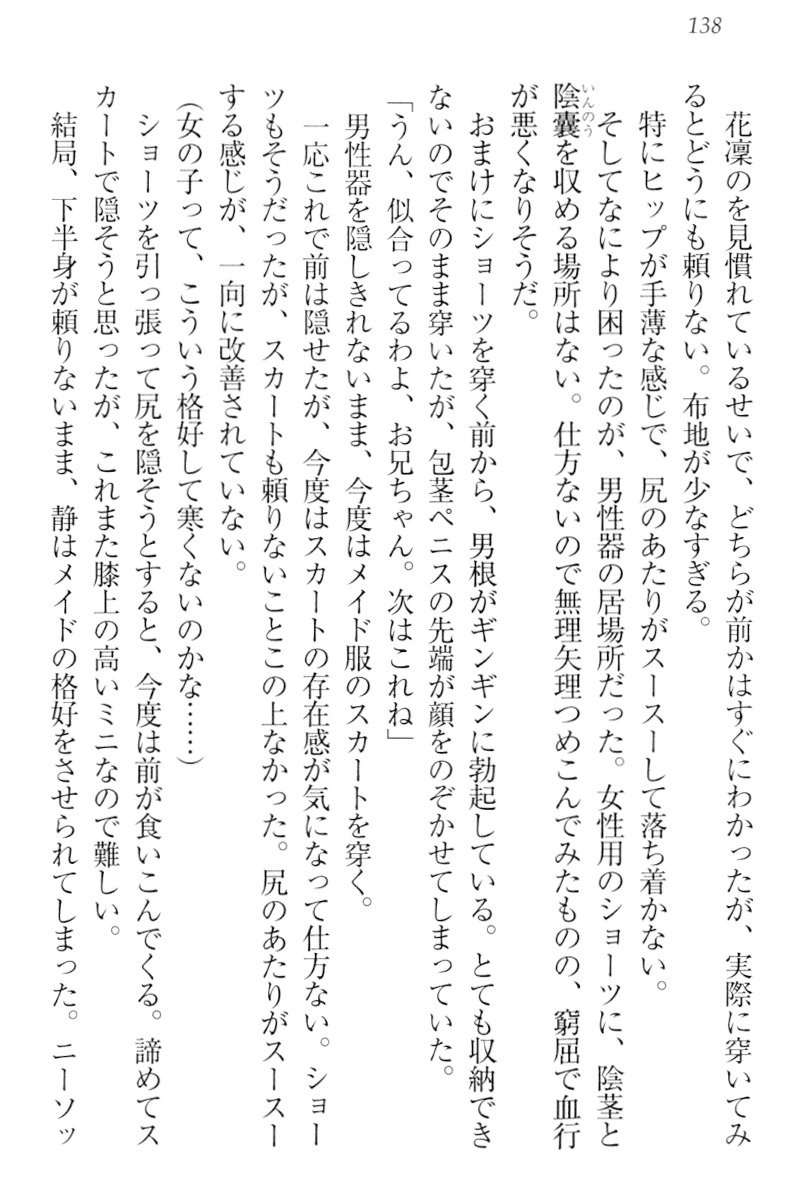 138
花凜のを見慣れているせいで、どちらが前かはすぐにわかったが、実際に穿いてみ
るとどうにも頼りない。布地が少なすぎる。
特にヒップが手薄な感じで、尻のあたりがスースーして落ち着かない。
そしてなにより困ったのが、男性器の居場所だった。女性用のショーツに、陰茎と
陰嚢を収める場所はない。仕方ないので無理矢理つめこんでみたものの、窮屈で血行
いんのう
が悪くなりそうだ。
おまけにショーツを穿く前から、男根がギンギンに勃起している。とても収納でき
ないのでそのまま穿いたが、包茎ペニスの先端が顔をのぞかせてしまっていた。
「うん、似合ってるわよ、お兄ちゃん。次はこれね」
男性器を隠しきれないまま、今度はメイド服のスカートを穿く。
一応これで前は隠せたが、今度はスカートの存在感が気になって仕方ない。ショー
ツもそうだったが、スカートも頼りないことこの上なかった。尻のあたりがスースー
する感じが、一向に改善されていない。
(女の子って、こういう格好して寒くないのかな……)
ショーツを引っ張って尻を隠そうとすると、今度は前が食いこんでくる。諦めてス
カートで隠そうと思ったが、これまた膝上の高いミニなので難しい。
結局、下半身が頼りないまま、静はメイドの格好をさせられてしまった。ニーソッ